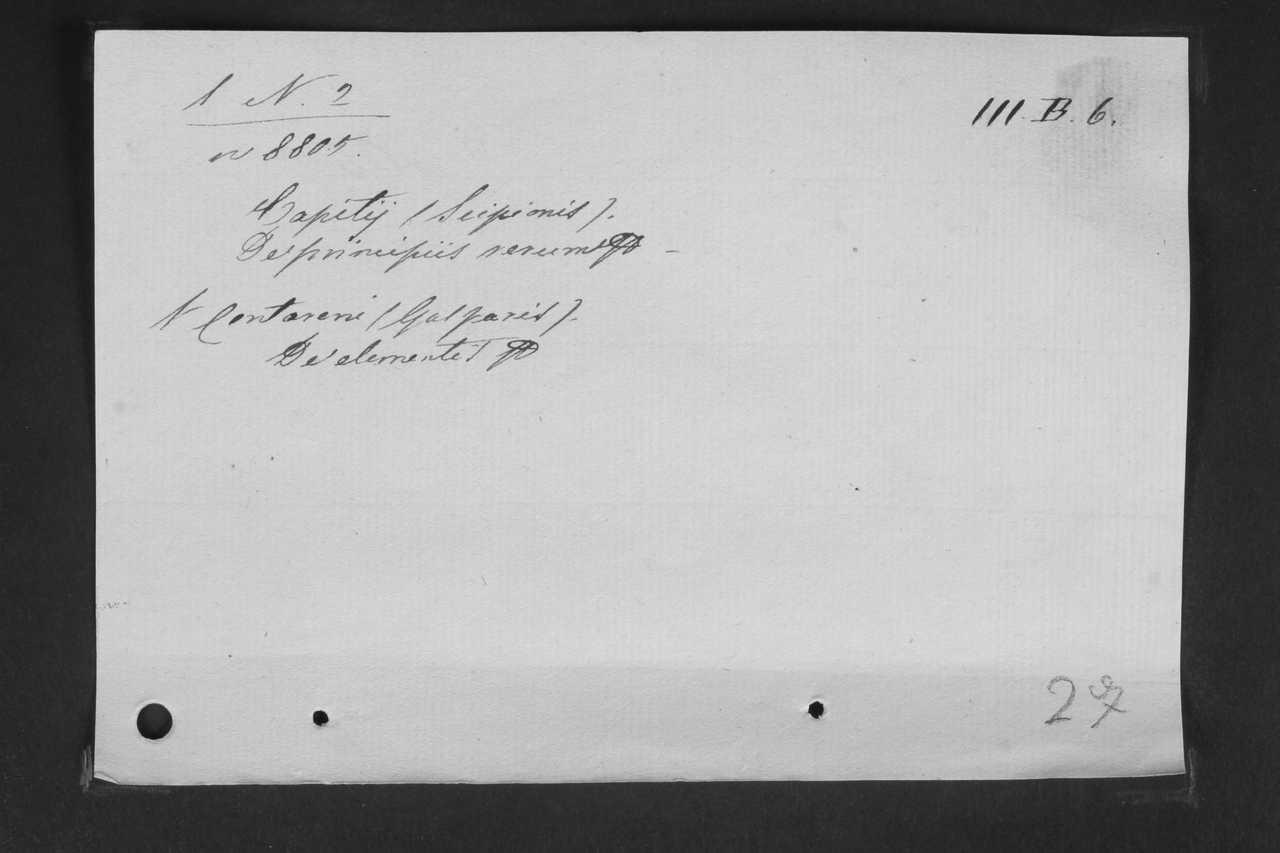 1 N. 2
III. B. 6.
n 8805.
Capitij (Scipionis).
De principiis rerum –
Contareni (Gasparis).
De elementis
27